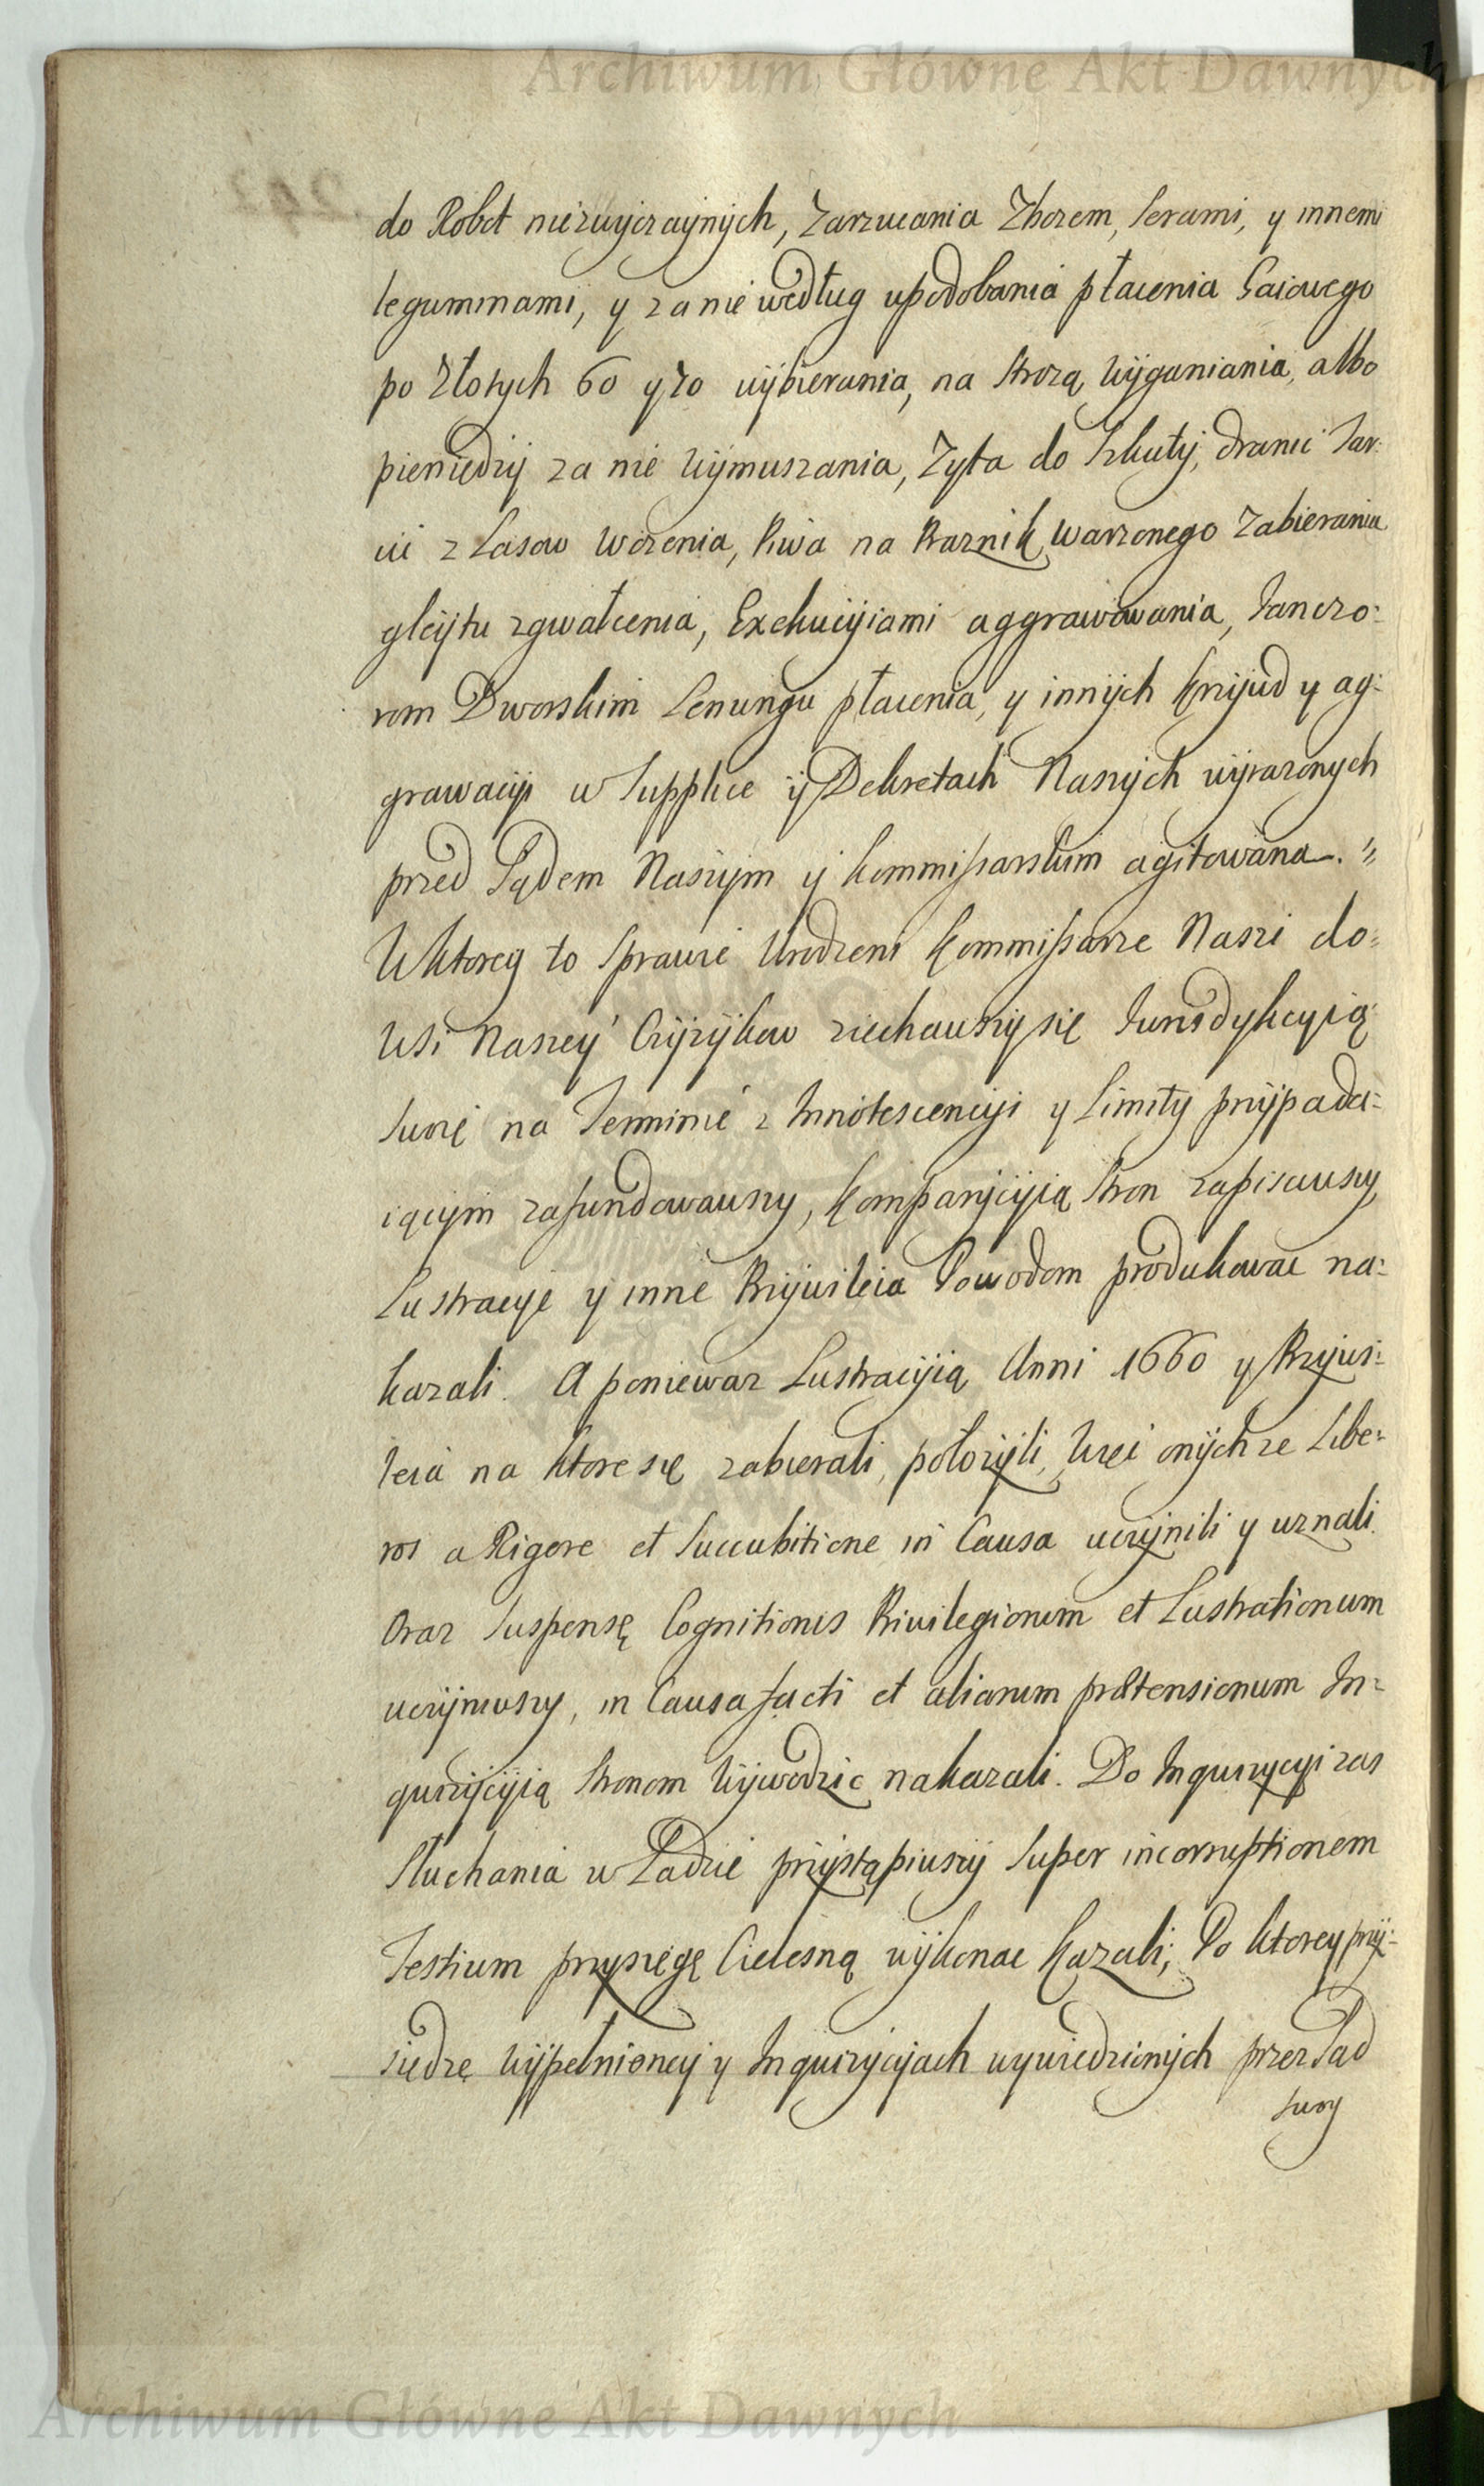 Archiwum Główne Akt Dawnych
do Robot niezwyczaynych, Zarzucania Zbozem, Serami, y innemi
leguminami, y za nie według upodobania płacenia Gaiowego
po Złotych 60 y 70 wybierania, na Strozą Wyganiania, albo
pieniędzy za nie Wymuszania, Zyta do Szkuty, dranic Tar:
cic z Lasow Wozenia, Piwa na Praznik Warzonego Zabierania
gleytu zgwałcenia, Exekucyiami aggrawowania, Janczo:
rom Dworskim Lenungu płacenia, y innych Krzywd y ag:
grawacyi w Supplice y Dekretach Naszych wyrazonych
przed Sądem Naszym y Kommissarskim agitowana.
W ktorey to Sprawie Urodzeni Kommissarze Naszi do:
Wsi Naszey Czyzykow ziechawszy się Jurisdykcyią
Swoię na Terminie z Innotescencyi y Limity przypada:
iącym zafundowawszy, Komparycyią Stron zapisawszy,
Lustracye y inne Przywileia Powodom produkowac na:
kazali. A poniewaz Lustracyią Anni 1660 y Przywi:
leia na ktore się zabierali, położyli, Więc onychze Libe:
ros a Rigore et Succubitione in Causa uczynili y uznali.
Oraz Suspensę Cognitionis Privilegiorum et Lustrationum
uczyniwszy, in Causa facti et aliarum prætensionum In:
quizycyią Stronom Wywodzic nakazali. Do Inquizycyi zas
Słuchania w Sadzie przystąpiwszy Super incorruptionem
Testium przysięgę Cielesną wykonac Kazali; Po ktorey przy:
siędze Wypełnioney y Inquizycyiach wywiedzionych przez Sad
Swoy
Archiwum Główne Akt Dawnych